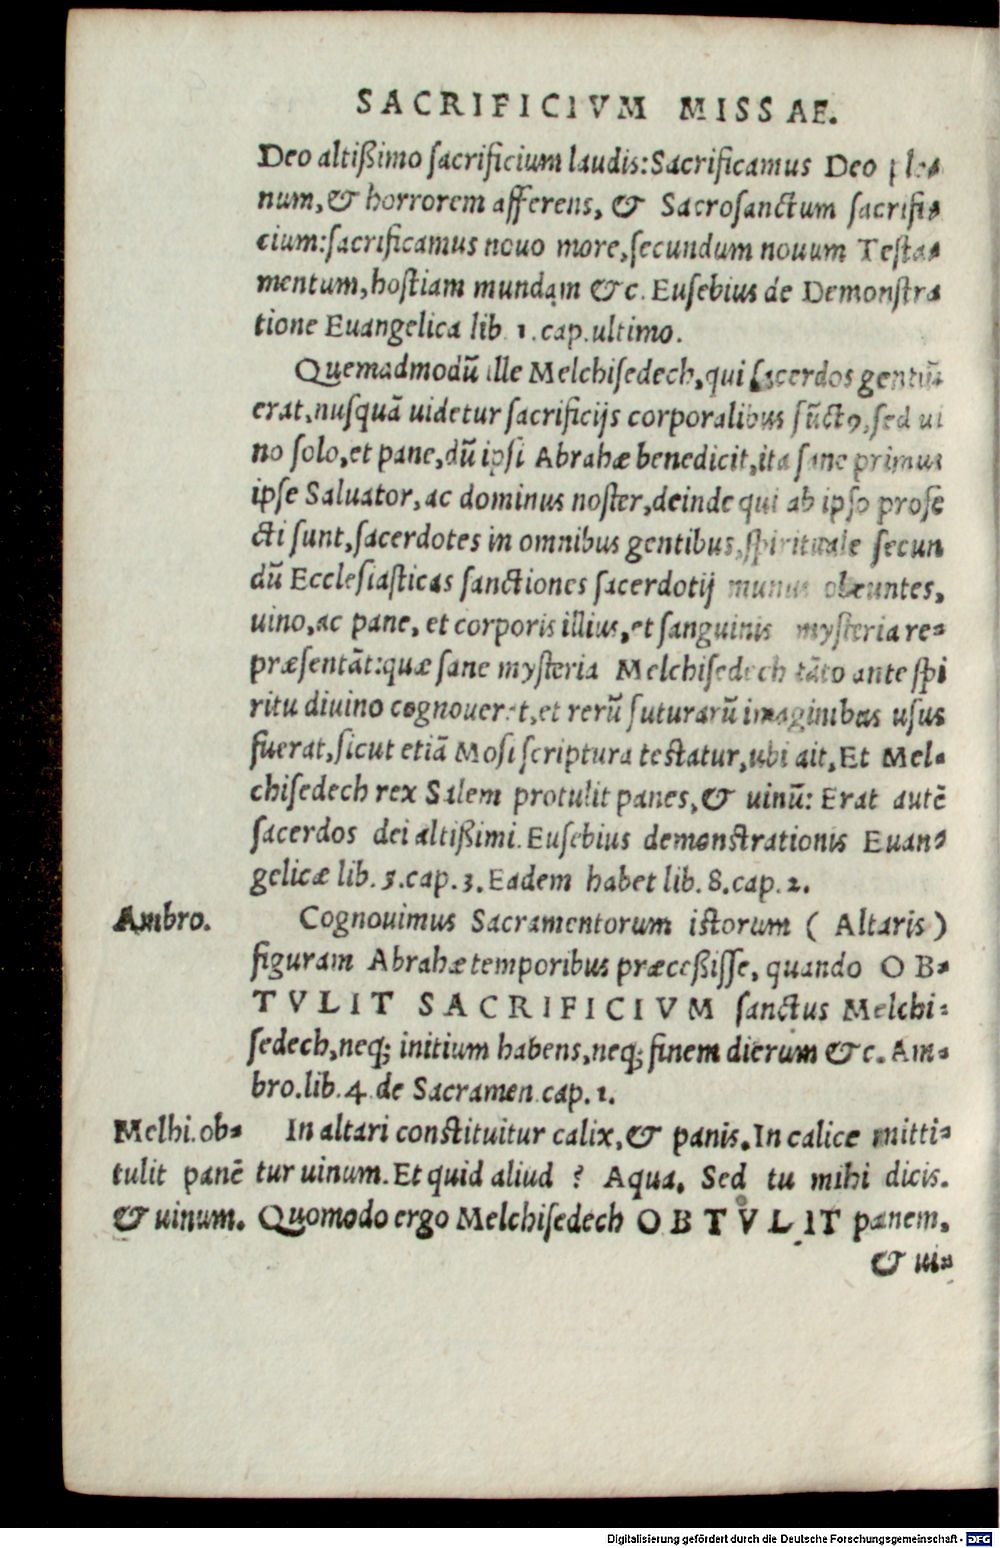 SACRIFICIVM MISSAE.
Deo altißimo sacrificium laudis: Sacrificamus Deo ple-
num, & horrorem afferens, & Sacrosanctum sacrifi-
cium: sacrificamus nouo more, secundum nouum Testa-
mentum, hostiam mundam &c. Eusebius de Demonstra
tione Euangelica lib. 1. cap. ultimo.
Quemadmodū ille Melchisedech, qui sacerdos gentiū
erat, nusquā uidetur sacrificijs corporalibus fūctꝰ, sed ui
no solo, et pane, dū ipsi Abrahæ benedicit, ita sane primus
ipse Saluator, ac dominus noster, deinde qui ab ipso profe
cti sunt, sacerdotes in omnibus gentibus, spirituale secun
dū Ecclesiasticas sanctiones sacerdotij munus obeuntes,
uino, ac pane, et corporis illius, et sanguinis mysteria re-
præsentāt: quæ sane mysteria Melchisedech tāto ante spi
ritu diuino cognouerat, et rerū futurarū imaginibus usus
fuerat, sicut etiā Mosi scriptura testatur, ubi ait, Et Mel-
chisedech rex Salem protulit panes, & uinū: Erat autē
sacerdos dei altißimi. Eusebius demonstrationis Euan-
gelicæ lib. 5. cap. 3. Eadem habet lib. 8. cap. 2.
Ambro.
Cognouimus Sacramentorum istorum ( Altaris )
figuram Abrahæ temporibus præceßisse, quando OB-
TVLIT SACRIFICIVM sanctus Melchi-
sedech, neq; initium habens, neq; finem dierum &c. Am-
bro. lib. 4. de Sacramen. cap. 1.
Melhi. ob-
tulit panē
& uinum.
In altari constituitur calix, & panis. In calice mitti-
tur uinum. Et quid aliud ? Aqua. Sed tu mihi dicis.
Quomodo ergo Melchisedech OBTVLIT panem,
& ui-
Digitalisierung gefördert durch die Deutsche Forschungsgemeinschaft - DFG